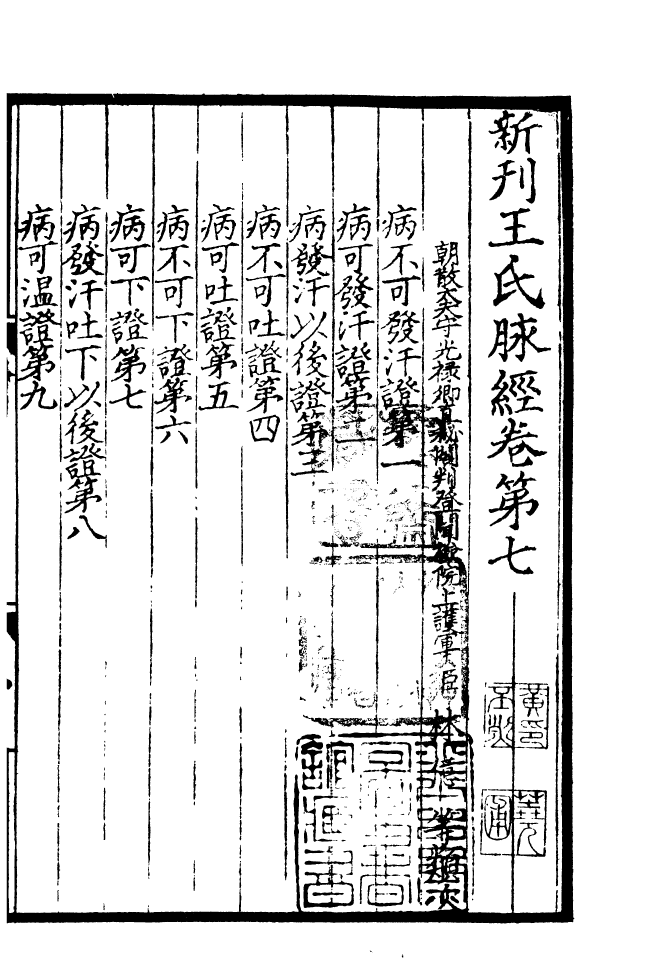 新刊王氏脉經卷第七
朝散大夫守光禄卿直秘閣判登聞檢院上護軍臣林億等類次
病不可發汗證第一
病可發汗證第二
病發汗以後證第三
病不可吐證第四
病可吐證第五
病不可下證第六
病可下證第七
病發汗吐下以後證第八
病可温證第九